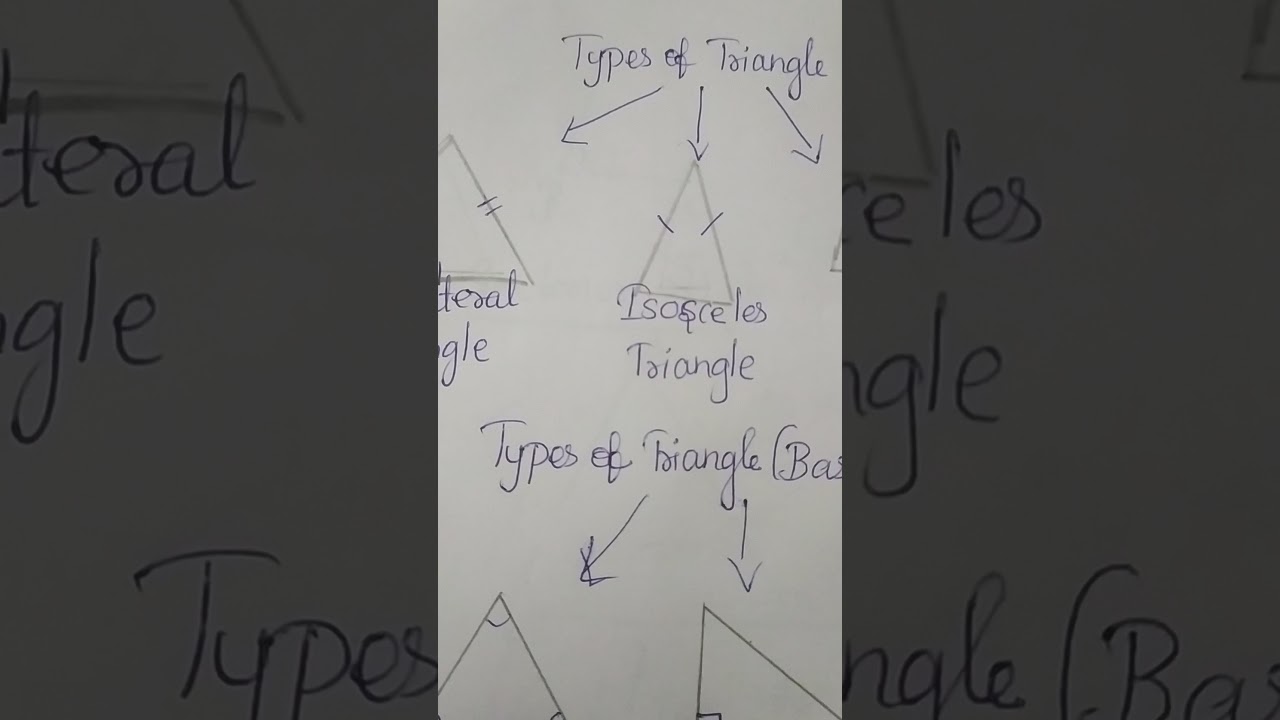 Types of Triangle
teral
gle
Isosceles
Triangle
Types of Triangle (Bas